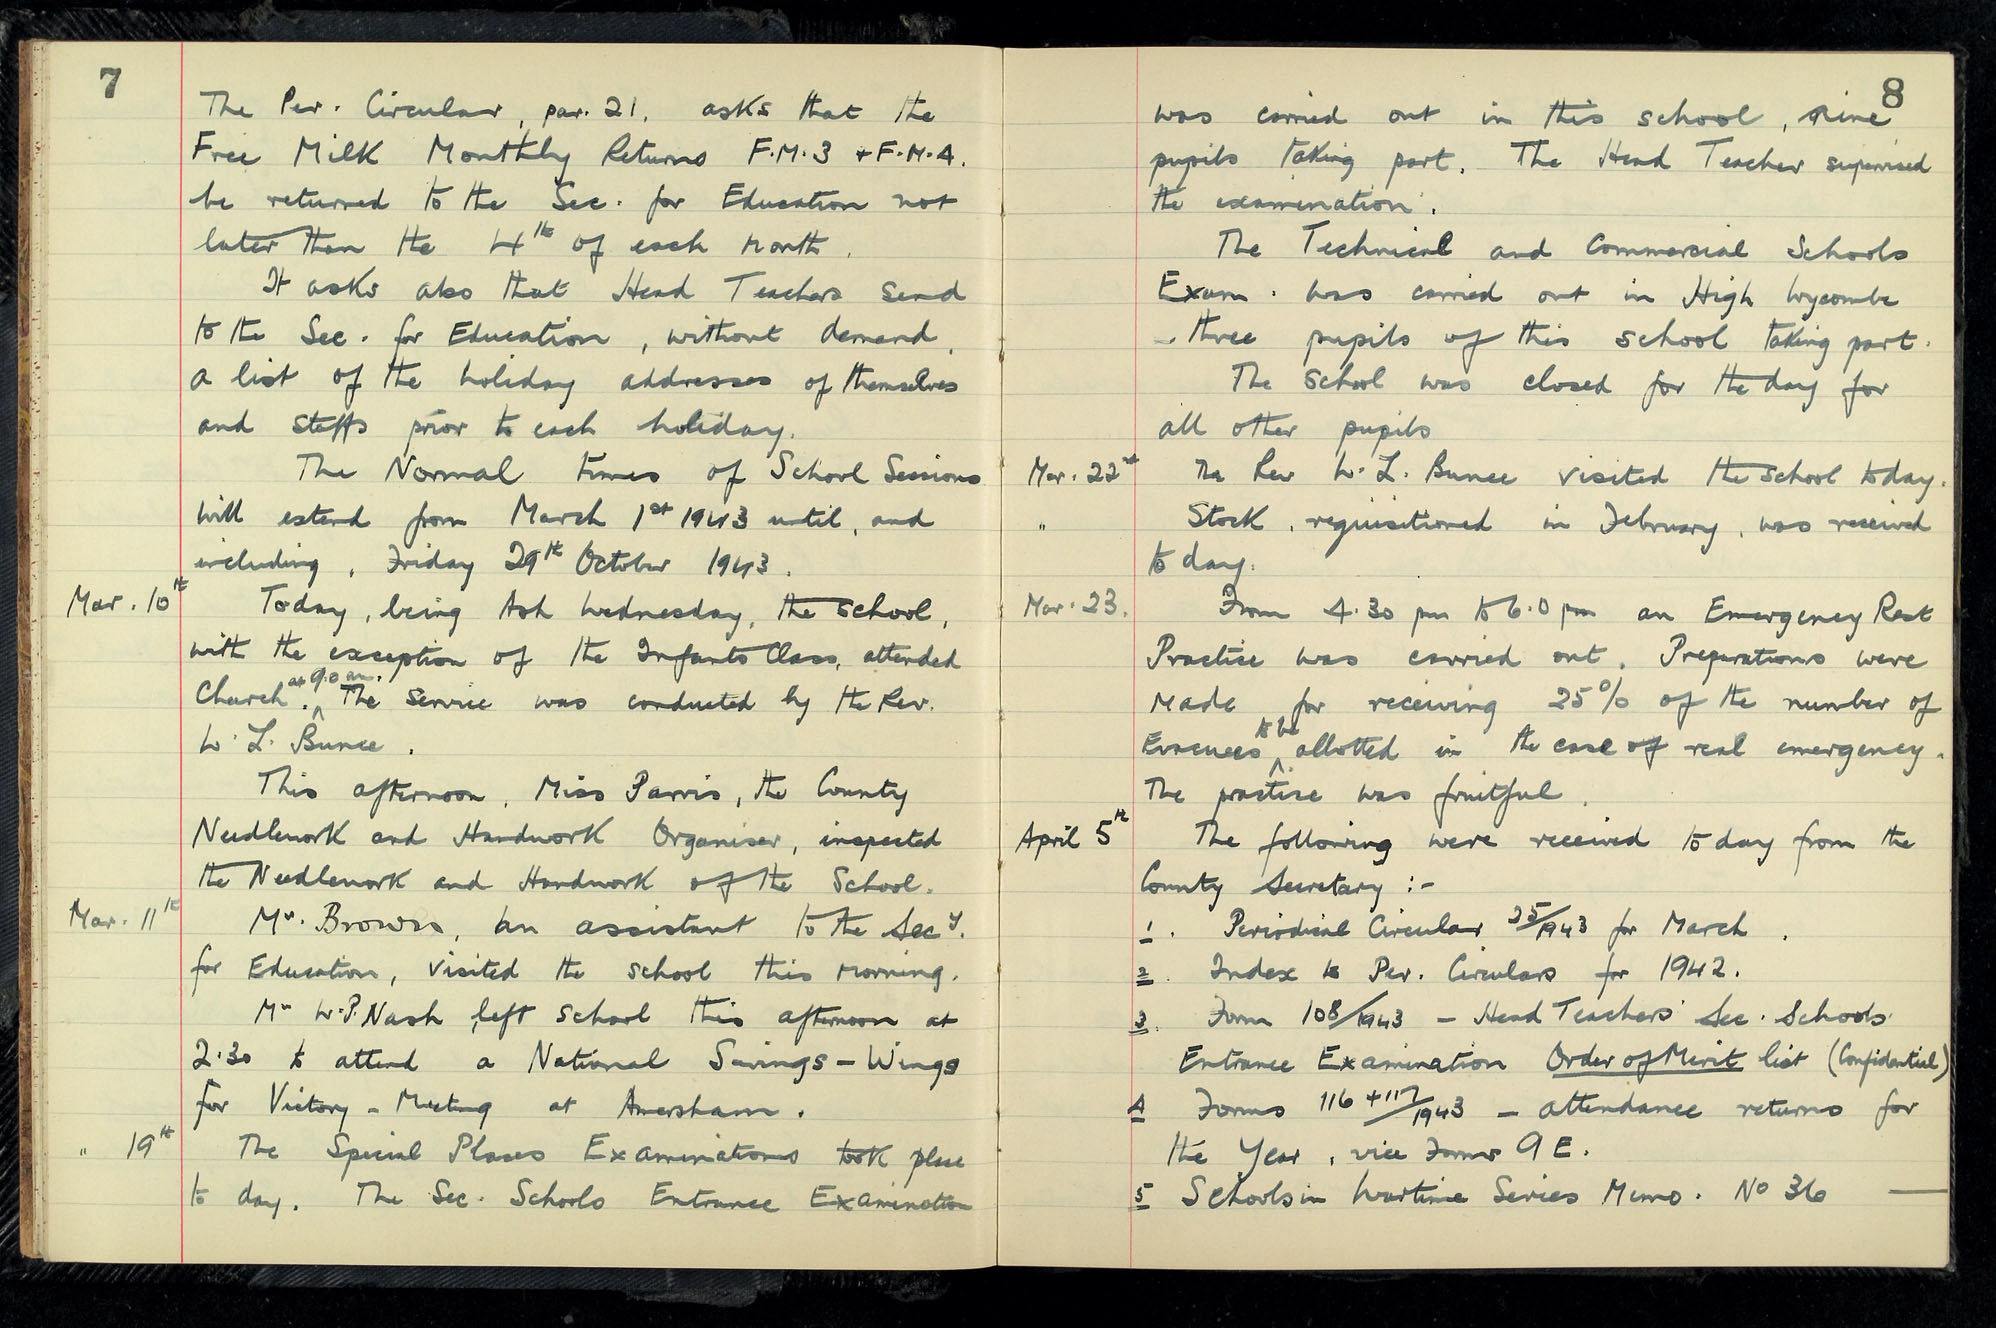 7
The Per. Circular, par. 21. asks that the
Free Milk Monthly Returns F.M.3 + F.M.4.
be returned to the Sec. for Education not
later than the 4th of each month.
It asks also that Head Teachers send
to the Sec. for Education, without demand,
a list of the holiday addresses of themselves
and staffs prior to each holiday.
The Normal times of School Sessions
will extend from March 1st 1943 until, and
including, Friday 29th October 1943.
Mar. 10th Today, being Ash Wednesday, the school,
with the exception of the Infants Class, attended
Church at 9.0 am. The service was conducted by the Rev.
W. L. Bunce.
This afternoon, Miss Parris, the County
Needlework and Handwork Organiser, inspected
the Needlework and Handwork of the School.
Mar. 11th Mr. Brown, an assistant to the Secy.
for Education, visited the school this morning.
Mr W.P. Nash left school this afternoon at
2.30 to attend a National Savings - Wings
for Victory - Meeting at Amersham.
" 19th The Special Places Examinations took place
to day. The Sec. Schools Entrance Examination
8
was carried out in this school, nine
pupils taking part. The Head Teacher supervised
the examination.
The Technical and Commercial Schools
Exam. was carried out in High Wycombe
- three pupils of this school taking part.
The School was closed for the day for
all other pupils
Mar. 22nd The Rev W. L. Bunce visited the school today.
" Stock, requisitioned in February, was received
to day.
Mar. 23. From 4.30 pm to 6.0 pm an Emergency Rest
Practise was carried out. Preparations were
made for receiving 25% of the number of
Evacuees to be allotted in the case of real emergency.
The practise was fruitful.
April 5th The following were received to day from the
County Secretary :-
1. Periodical Circular 25/1943 for March.
2. Index to Per. Circulars for 1942.
3. Form 108/1943 - Head Teachers' Sec. Schools
Entrance Examination Order of Merit list (Confidential)
4 Forms 116 + 117/1943 - attendance returns for
the Year, vice Form 9E.
5 Schools in Wartime Series Memo. No 36